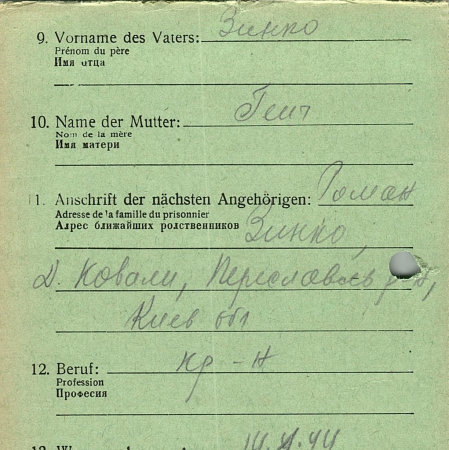 9. Vorname des Vaters: Зинко
Prénom du père
Имя отца
10. Name der Mutter:
Nom de la mère
Имя матери
1. Anschrift der nächsten Angehörigen: Роман
Adresse de la famille du prisonnier
Адрес ближайших родственников Зинко,
Д. Ковали, Переславль р-н,
Киев обл
12. Beruf: кр-н
Profession
Професия